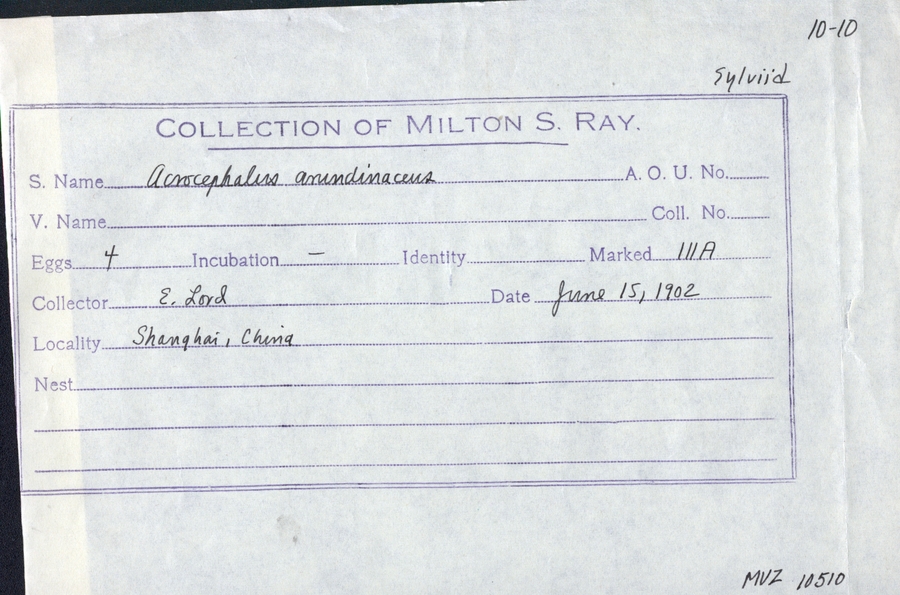 10-10
Sylviid
COLLECTION OF MILTON S. RAY.
S. Name Acrocephalus arundinaceus A. O. U. No.
V. Name Coll. No.
Eggs 4 Incubation – Identity Marked 111A
Collector E. Lord Date June 15, 1902
Locality Shanghai, China
Nest
MVZ 10510